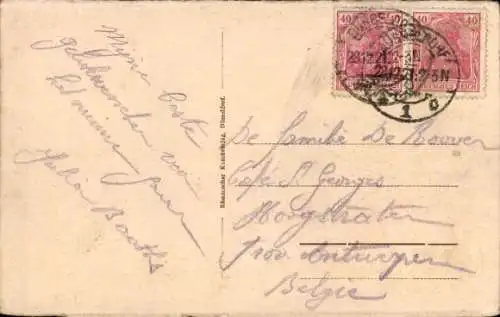 Mijne beste
gelukwenschen voor
het nieuwe jaar
Julia Baaths
Rheinischer Kunstverlag, Düsseldorf.
40
40
1
De Familie De Roover
Café St Georges
Hoogstraten
Prov. Antwerpen
Belgie